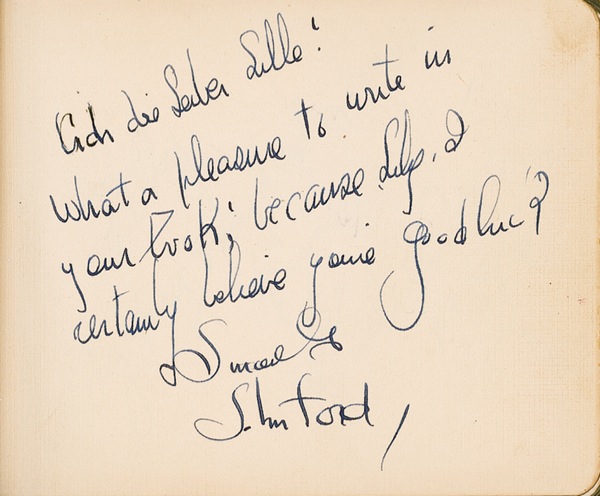 die Lieber Lille!
What a pleasure to write in
your book; because Lily. I
certainly believe you're good luck
Sincerely
John Ford